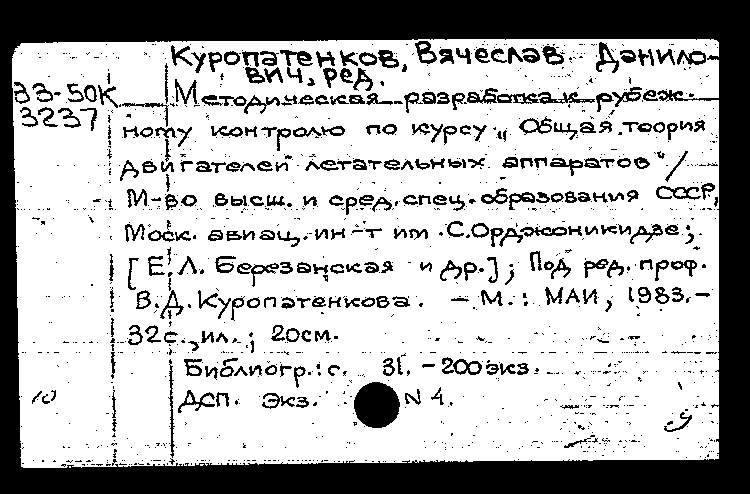 Куропатенков, Вячеслав Данило-
вич, ред.
33-50К
3237
Методическая разработка к рубеж-
ному контролю по курсу „Общая теория
двигателей летательных аппаратов" /
М-во высш. и сред. спец. образования СССР,
Моск. авиац. ин-т им. С. Орджоникидзе;
[Е. Л. Березанская и др.]; Под ред. проф.
В. Д. Куропатенкова. - М.: МАИ, 1983. -
32с., ил.; 20см.
Библиогр.: с. 31. - 200 экз.
ДСП. Экз. N 4.
10